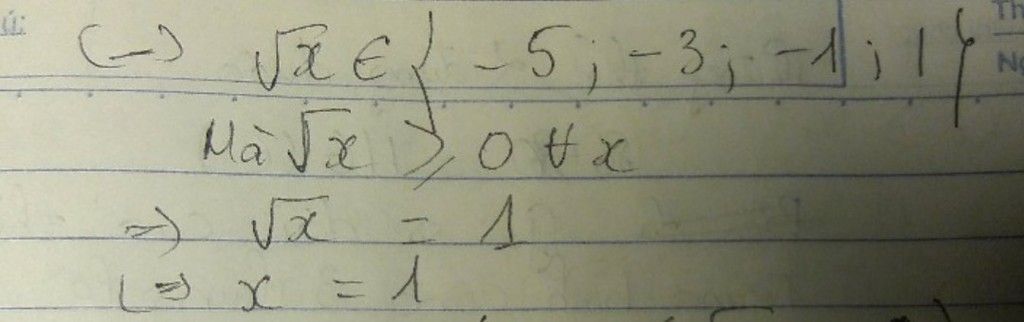 (=) √x ∈ { -5 ; -3 ; -1 ; 1 }
Mà √x ⩾ 0 ∀ x
=) √x = 1
(=) x = 1